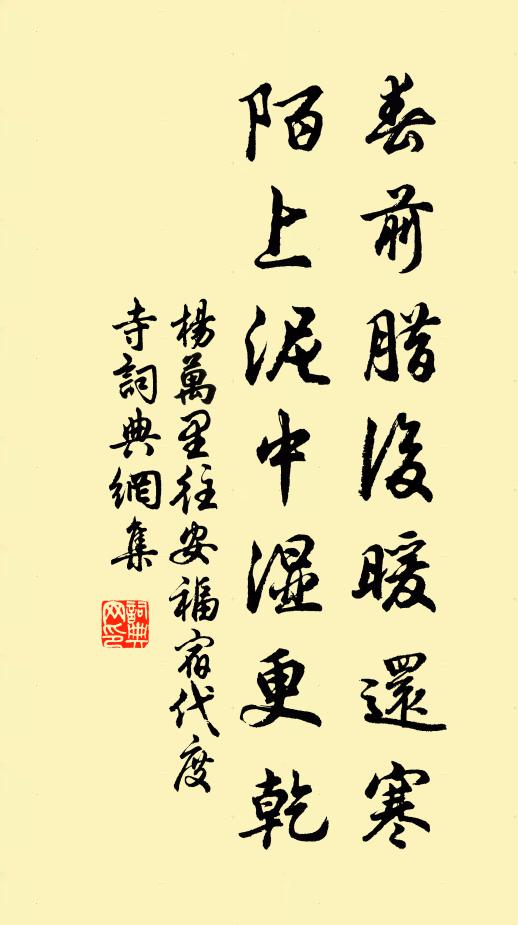 春前腊後暖還寒
陌上泥中湿更乾
楊萬里往安福宿代度
寺詞典網集
詞典网印